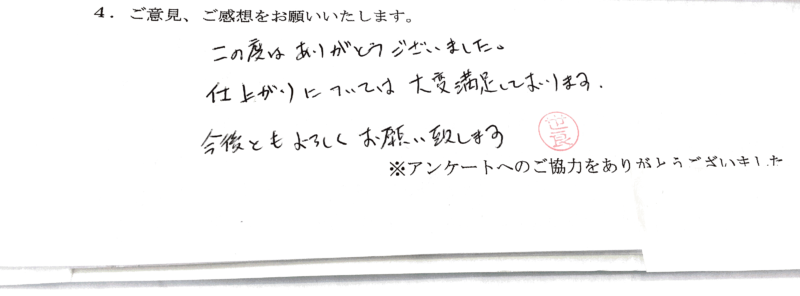 4．ご意見、ご感想をお願いいたします。
この度はありがとうございました。
仕上がりについては大変満足しております.
今後ともよろしくお願い致します
※アンケートへのご協力をありがとうございました